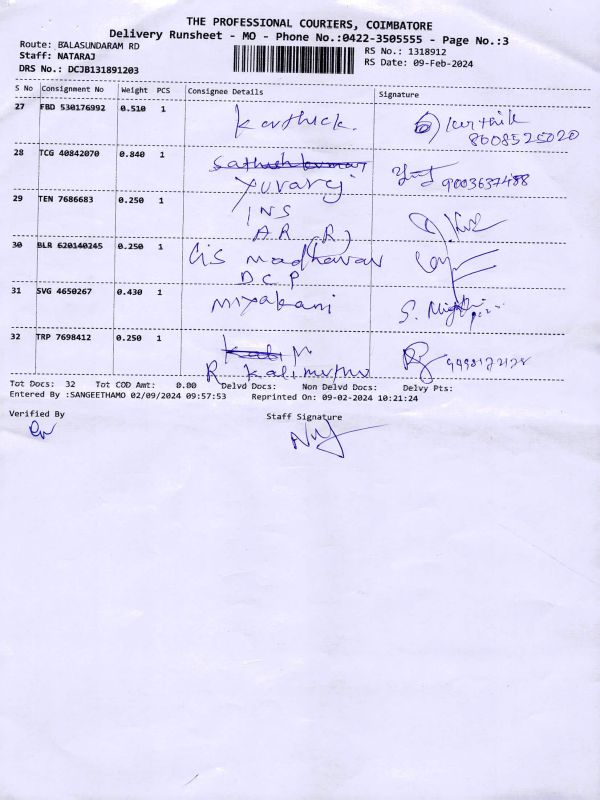 THE PROFESSIONAL COURIERS, COIMBATORE
Delivery Runsheet - MO - Phone No.:0422-3505555 - Page No.:3
Route: BALASUNDARAM RD
RS No.: 1318912
Staff: NATARAJ
RS Date: 09-Feb-2024
DRS No.: DCJB131891203
S No Consignment No Weight PCS Consignee Details Signature
27 FBD 530176992 0.510 1 Karthick. Karthik
8608525020
28 TCG 40842070 0.840 1 Sathish kumar
Yuvaraj 9003637488
29 TEN 7686683 0.250 1 INS
AR (R)
30 BLR 620140245 0.250 1 GIS madhavan
DCP
31 SVG 4650267 0.430 1 Miyakani S.
32 TRP 7698412 0.250 1
R Kalimuthu
Tot Docs: 32 Tot COD Amt: 0.00 Delvd Docs: Non Delvd Docs: Delvy Pts:
Entered By :SANGEETHAMO 02/09/2024 09:57:53 Reprinted On: 09-02-2024 10:21:24
Verified By Staff Signature